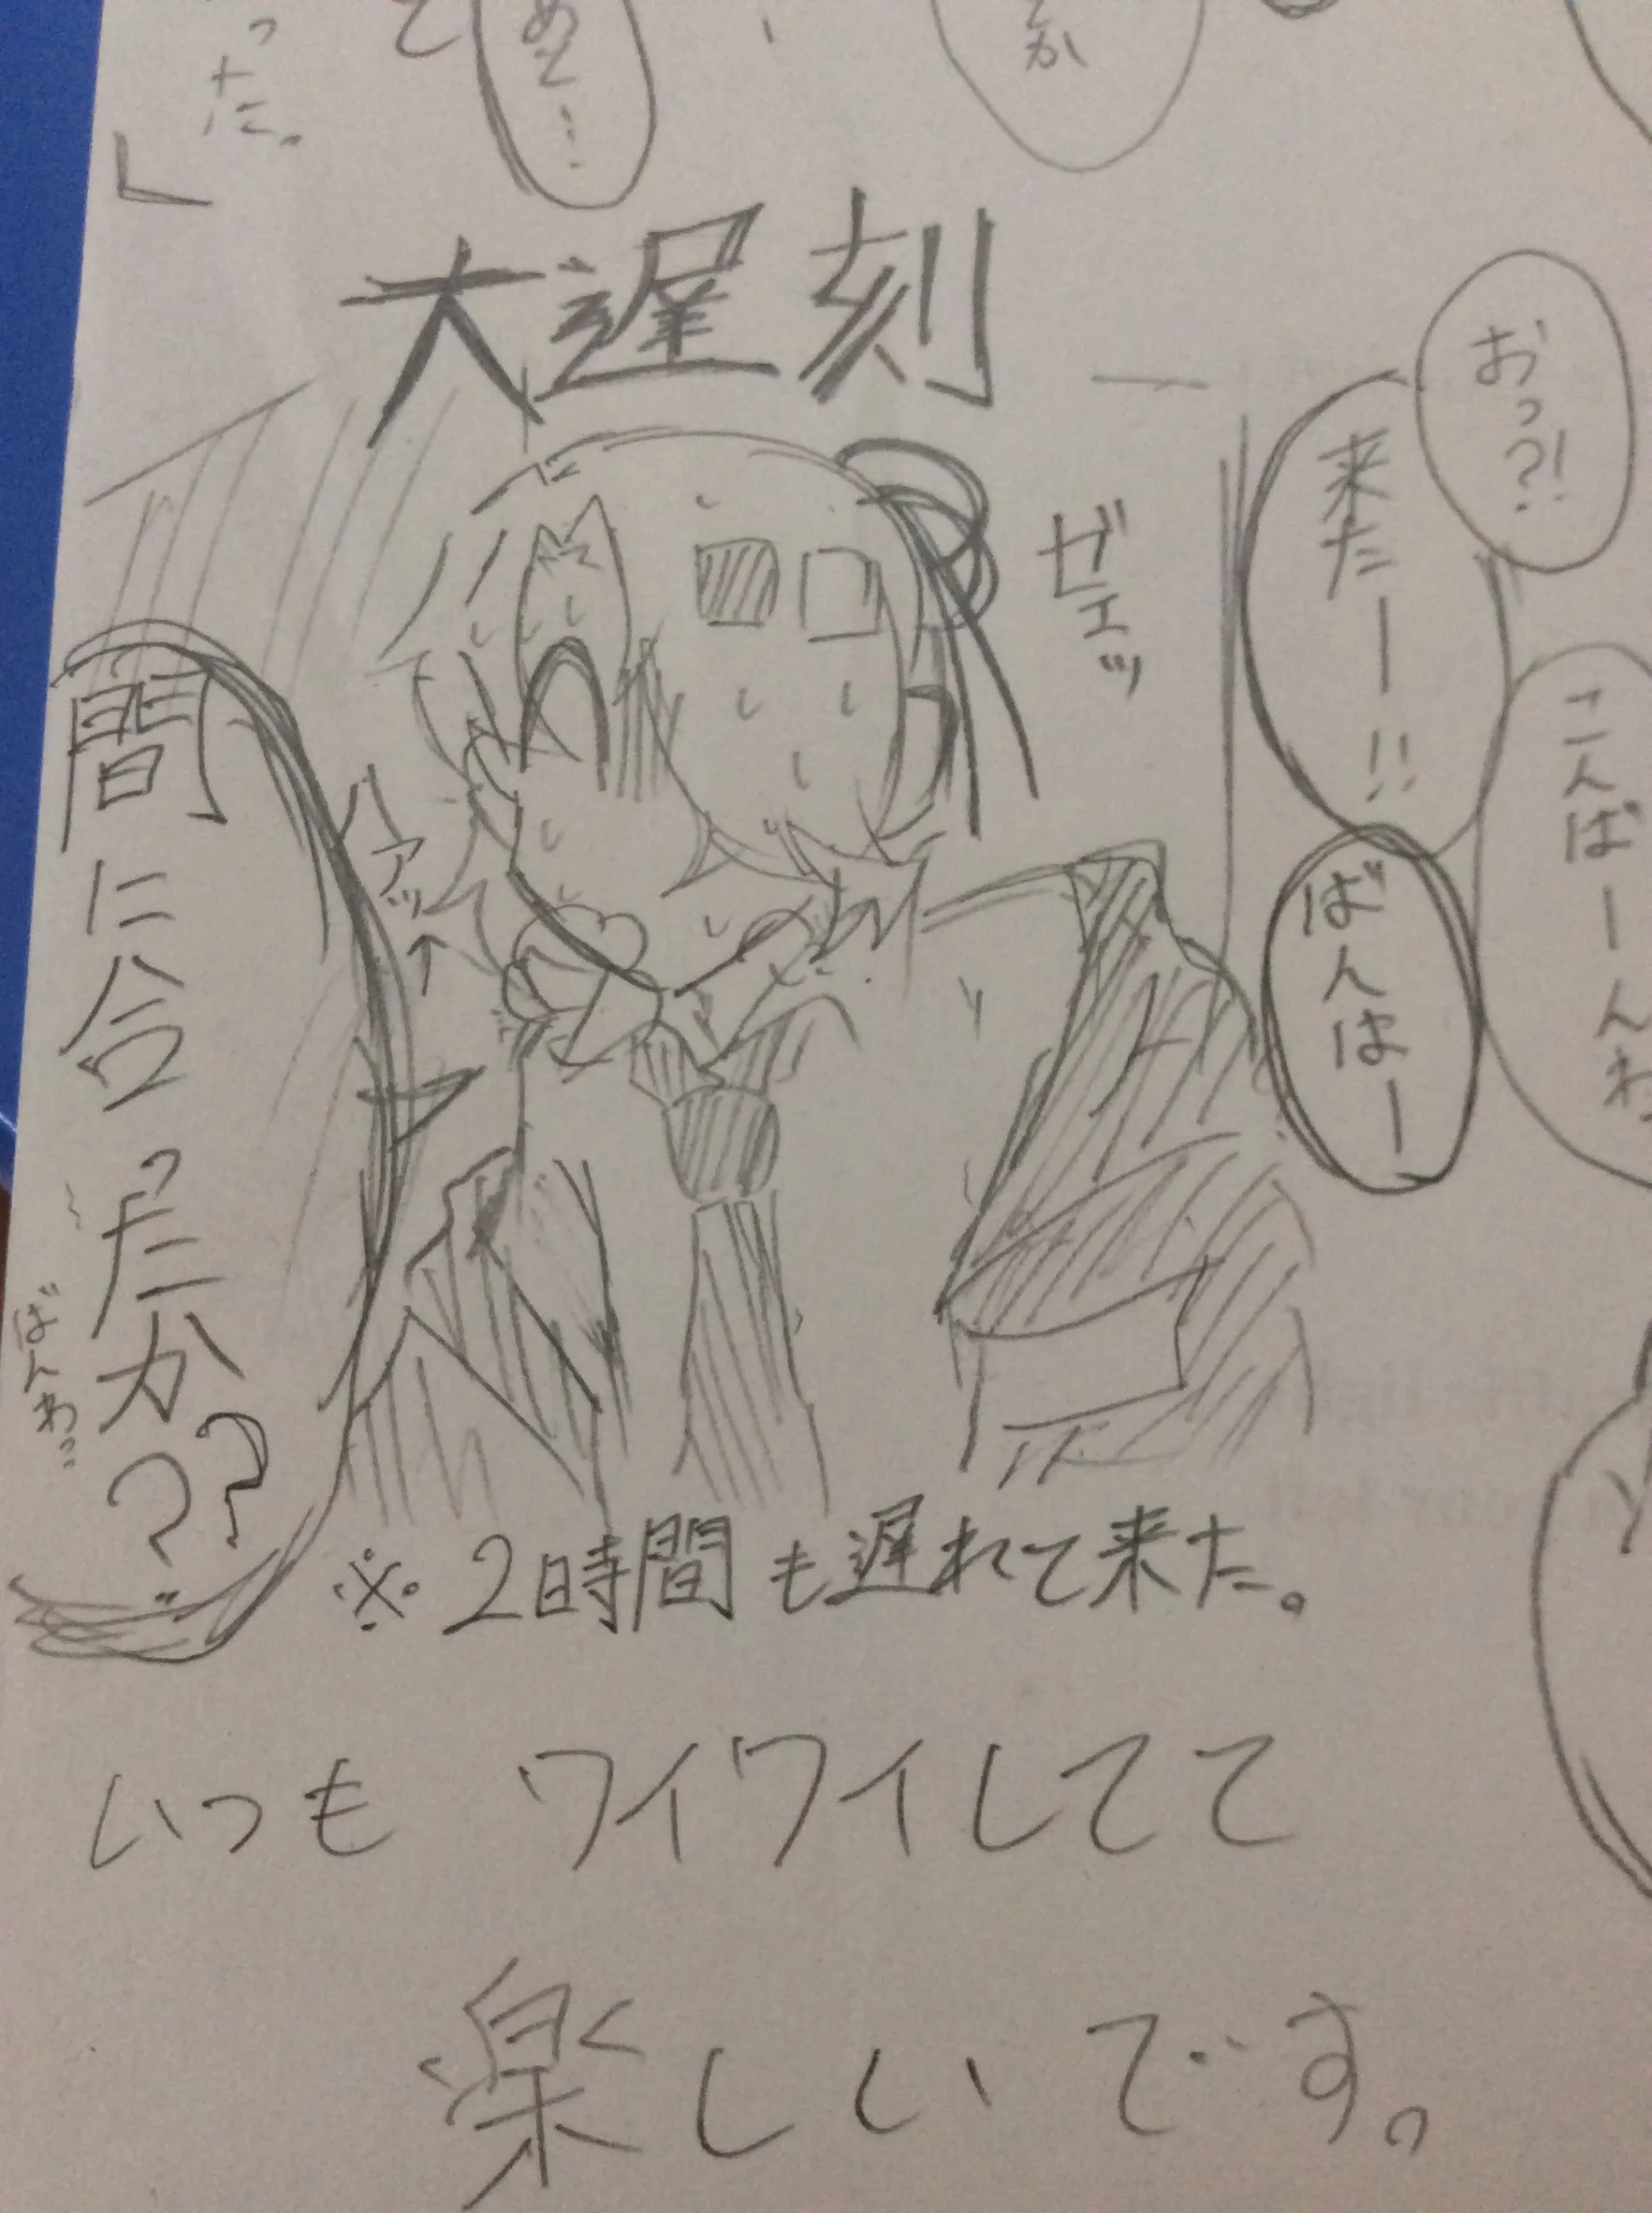 った。
めて…
とか
大遅刻
おっ?!
来たー!!
こんばーんわっ
ばんはー
ゼエッ
ハアッ
間に合ったか??
ばんわっ
※2時間も遅れて来た。
いつも ワイワイしてて
楽しいです。